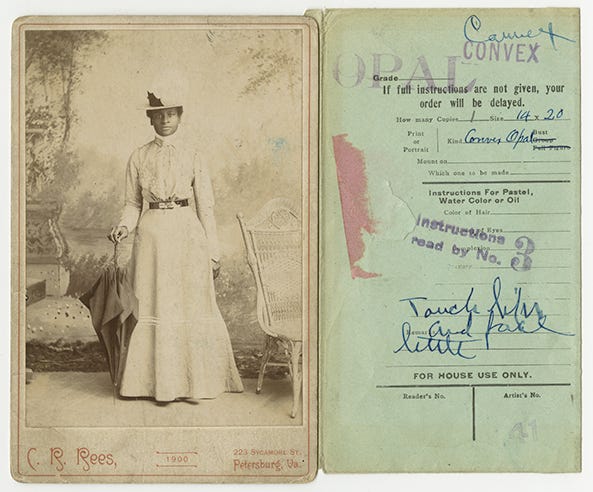 C. R. Rees,
1900
223 Sycamore St.
Petersburg, Va.
Convex
CONVEX
OPAL
Grade
If full instructions are not given, your
order will be delayed.
How many Copies 1 Size 14 x 20
Print
or
Portrait
Kind Convex Opal
Bust
Group
Full Figure
Mount on
Which one to be made
Instructions For Pastel,
Water Color or Oil
Color of Hair
of Eyes
Complexion
Instructions
read by No. 3
Touch
Remarks
and
little
FOR HOUSE USE ONLY.
Reader's No. Artist's No.
41